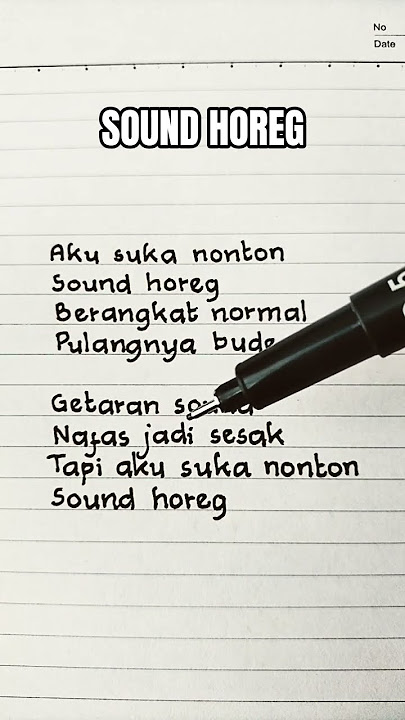 No
Date
SOUND HOREG
Aku suka nonton
Sound horeg
Berangkat normal
Pulangnya
Getaran
Nafas jadi sesak
Tapi aku suka nonton
Sound horeg